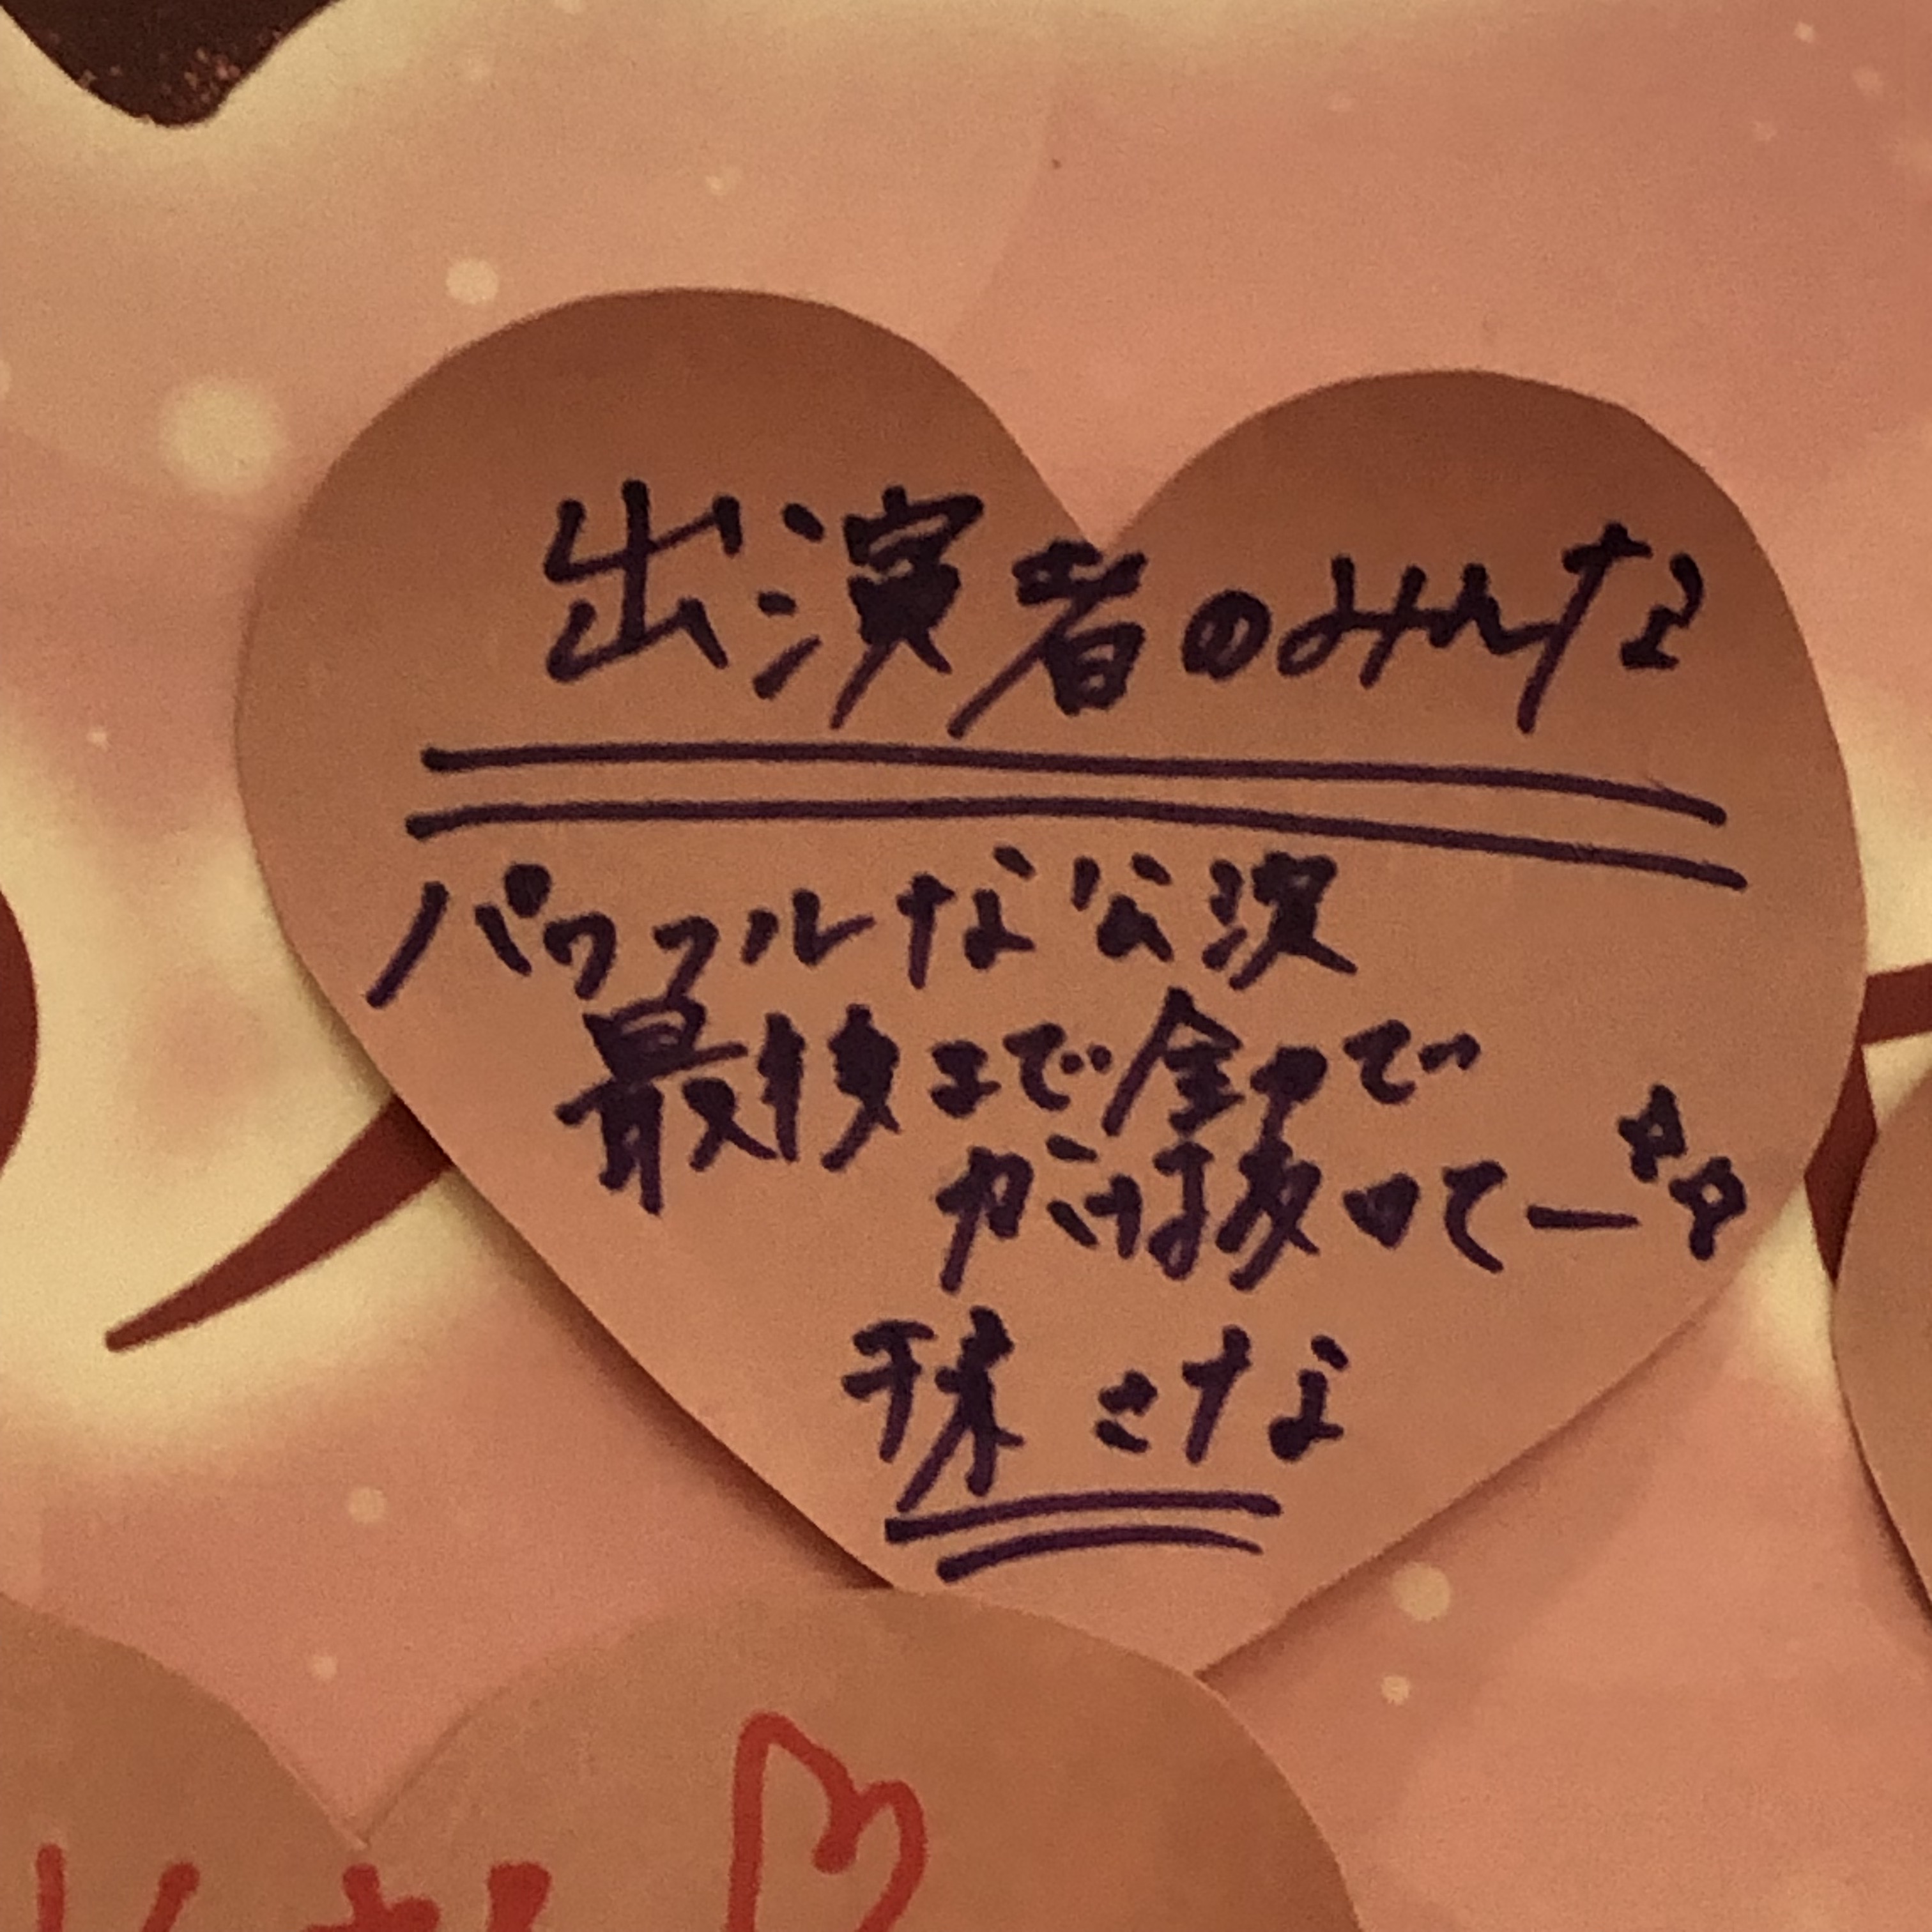 出演者のみんな
パワフルな公演
最後まで全力で
かけ抜けてー☆☆
千秋 さな